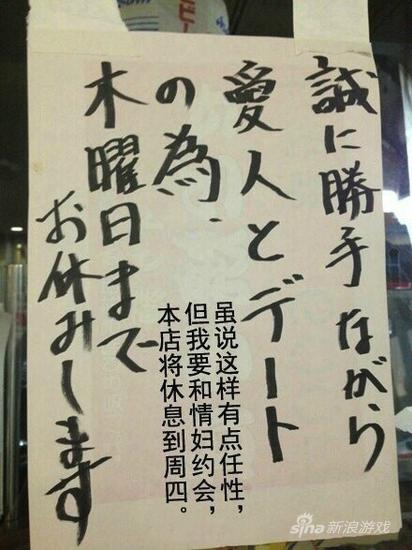 誠に勝手ながら
愛人とデート
の為、
木曜日まで
お休みします
虽说这样有点任性，
但我要和情妇约会，
本店将休息到周四。
sina新浪游戏